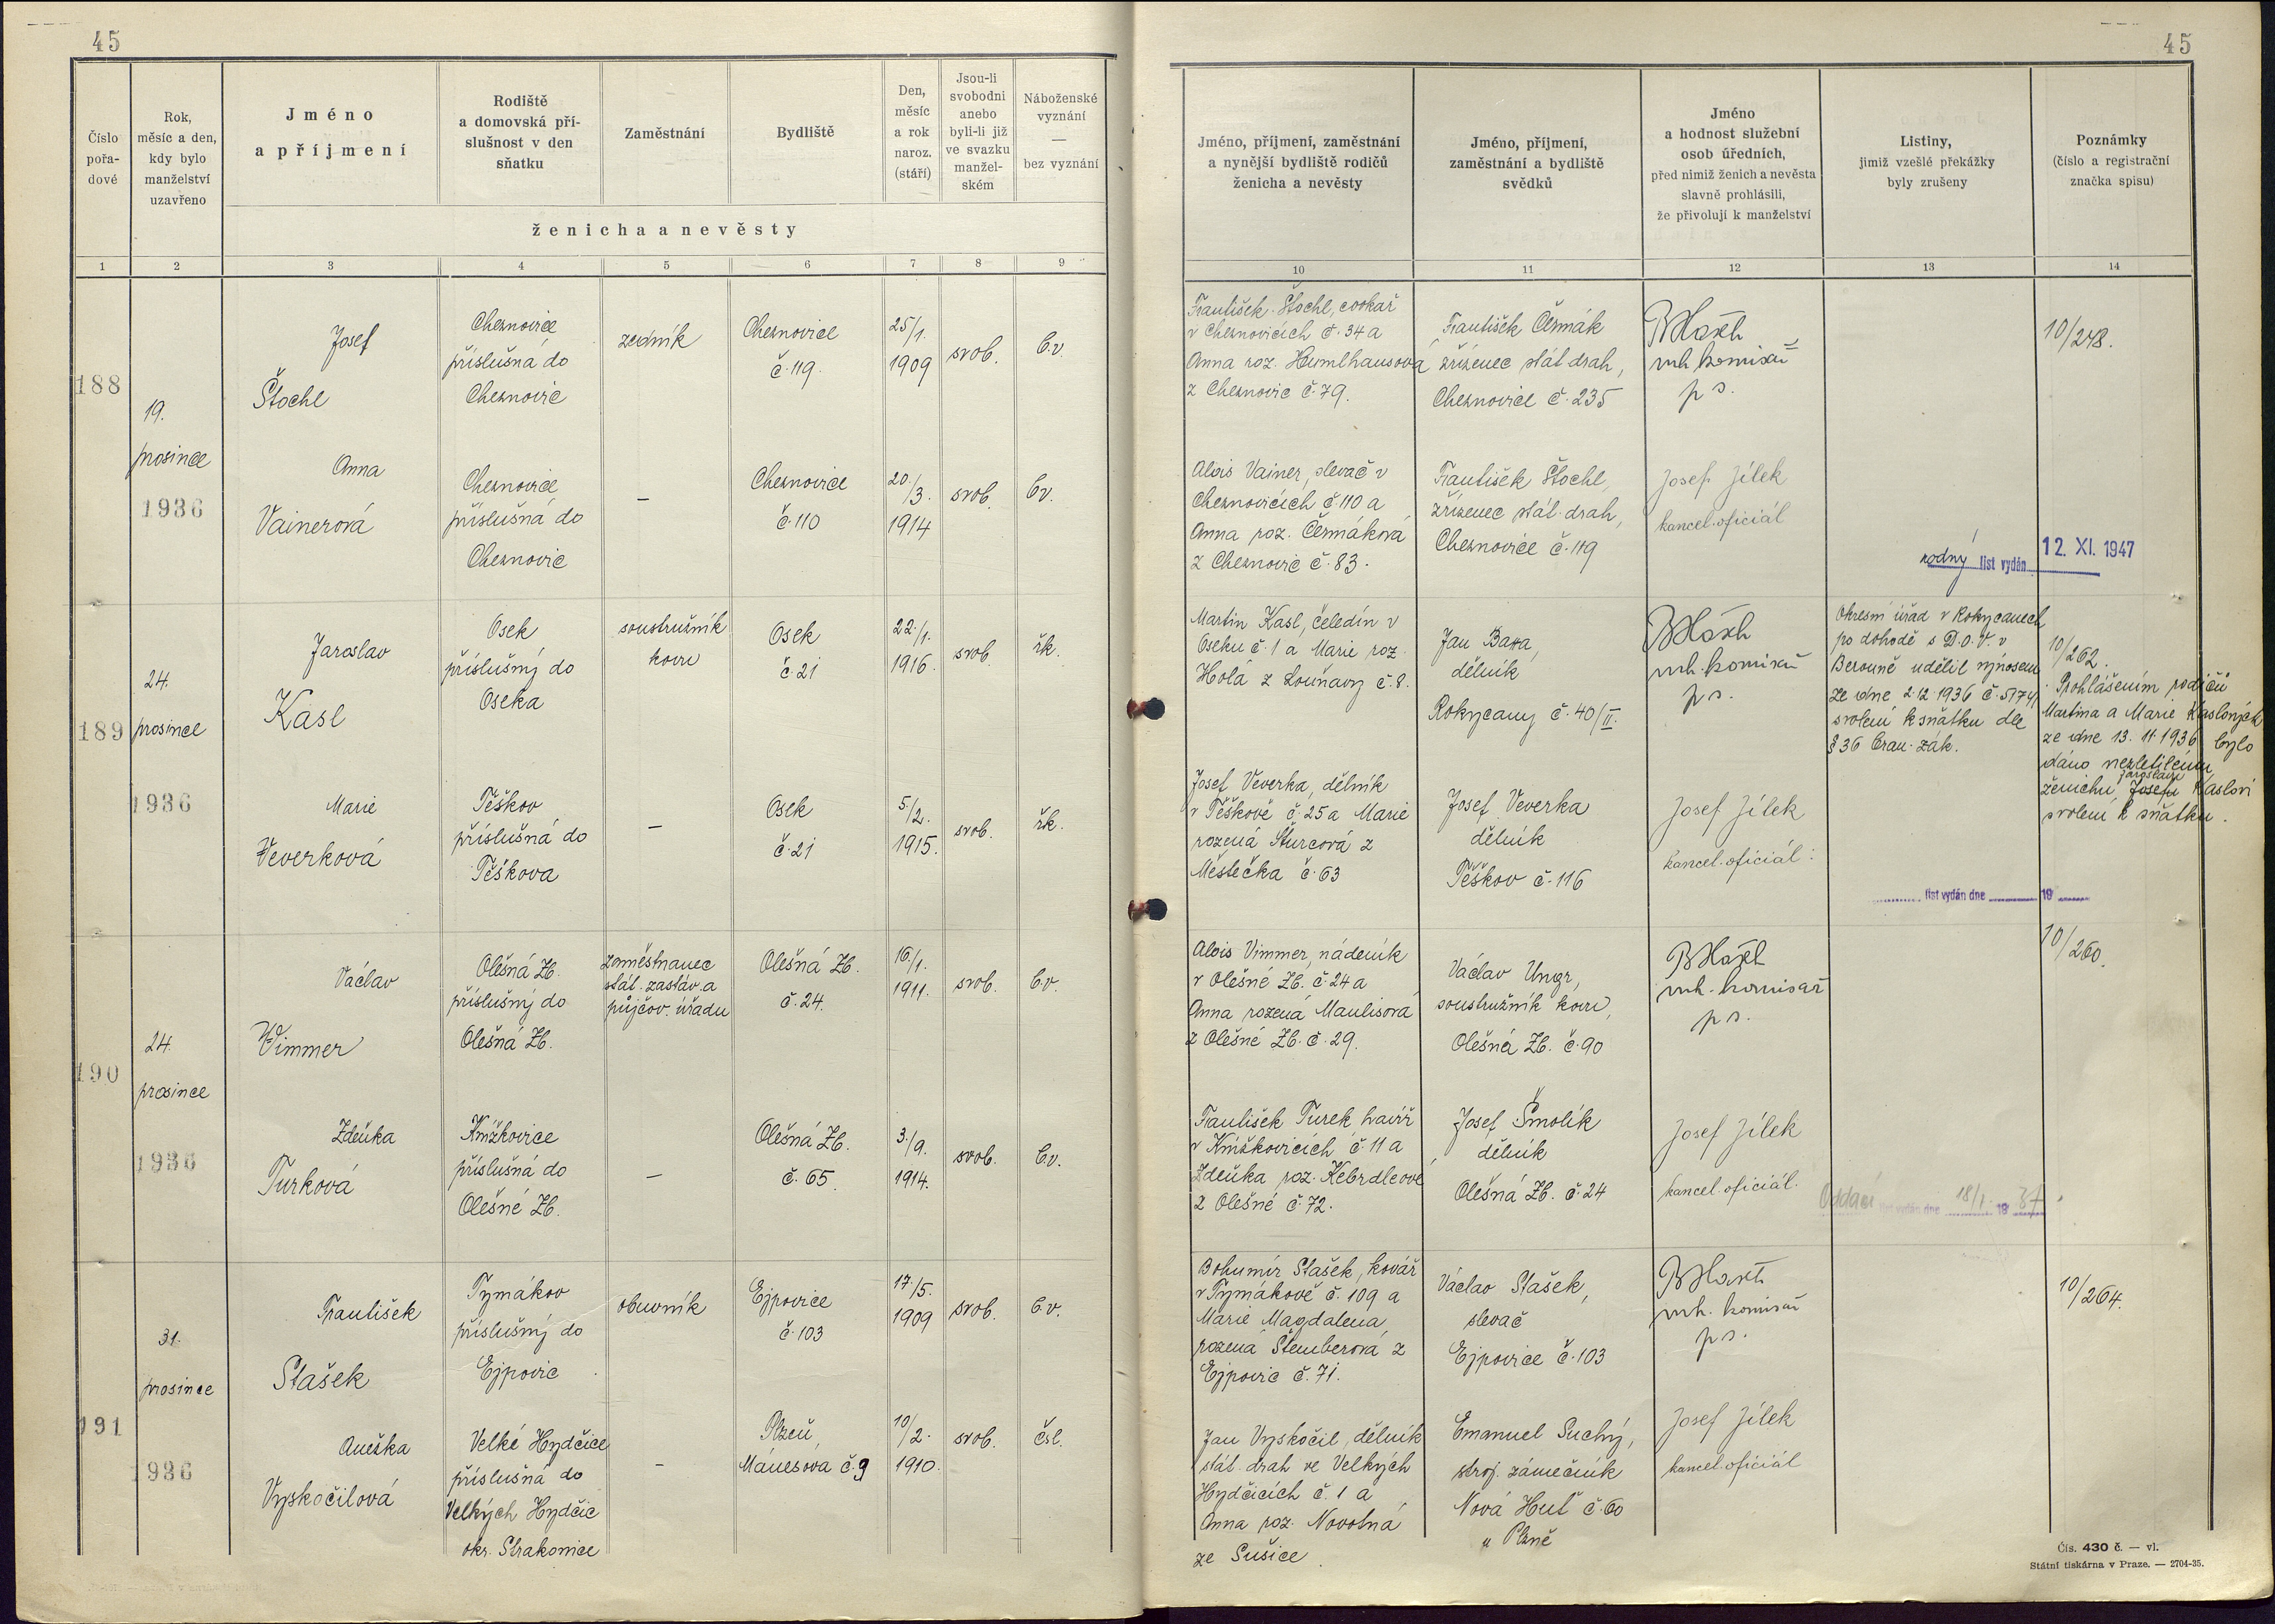 45
45
Číslo
pořa-
dové
Rok,
měsíc a den,
kdy bylo
manželství
uzavřeno
Jméno
a příjmení
Rodiště
a domovská pří-
slušnost v den
sňatku
Zaměstnání
Bydliště
Den,
měsíc
a rok
naroz.
(stáří)
Jsou-li
svobodni
anebo
byli-li již
ve svazku
manžel-
ském
Náboženské
vyznání
—
bez vyznání
ženicha a nevěsty
Jméno, příjmení, zaměstnání
a nynější bydliště rodičů
ženicha a nevěsty
Jméno, příjmení,
zaměstnání a bydliště
svědků
Jméno
a hodnost služební
osob úředních,
před nimiž ženich a nevěsta
slavně prohlásili,
že přivolují k manželství
Listiny,
jimiž vzešlé překážky
byly zrušeny
Poznámky
(číslo a registrační
značka spisu)
1 2 3 4 5 6 7 8 9 10 11 12 13 14
188
19.
prosince
1936
Josef
Štochl
Cheznovice
příslušná do
Cheznovic
zedník
Cheznovice
č. 119.
25/1.
1909
svob.
b.v.
František Štochl, cvokař
v Cheznovicích č. 34 a
Anna roz. Humlhausova
z Cheznovic č. 79.
František Čermák
zřízenec stát. drah,
Cheznovice č. 235
vrch. komisař
p s.
10/248.
Anna
Vainerová
Cheznovice
příslušná do
Cheznovic
—
Cheznovice
č. 110
20./3.
1914
svob.
bv.
Alois Vainer, slevač v
Cheznovicích č. 110 a
Anna roz. Čermáková
z Cheznovic č. 83.
František Štochl,
zřízenec stát. drah,
Cheznovice č. 119
Josef Jílek
kancel. oficiál
rodný list vydán 12. XI. 1947
189
24.
prosince
1936
Jaroslav
Kasl
Osek
příslušný do
Oseka
soustružník
kovu
Osek
č. 21
22./1.
1916.
svob.
řk.
Martin Kasl, čeledín v
Oseku č. 1 a Marie roz.
Holá z Louňavy č. 8.
Jan Baxa,
dělník
Rokycany č. 40/II.
vrch. komisař
p s.
Okresní úřad v Rokycanech
po dohodě s D.O.V. v
Berouně udělil výnosem
ze dne 2. 12. 1936 č. 5174/
svolení k sňatku dle
§ 36 bran. zák.
10/262.
Prohlášením rodičů
Martina a Marie Kaslových
ze dne 13. 11. 1936 bylo
dáno nezletilému
Jaroslavu
ženichu Josefu Kaslovi
svolení k sňatku.
Marie
Veverková
Těškov
příslušná do
Těškova
—
Osek
č. 21
5./2.
1915.
svob.
řk.
Josef Veverka, dělník
v Těškově č. 25 a Marie
rozená Šturcová z
Městečka č. 63
Josef Veverka
dělník
Těškov č. 116
Josef Jílek
kancel. oficiál
list vydán dne 19
190
24.
prosince
1936
Václav
Wimmer
Olešná Zb.
příslušný do
Olešná Zb.
zaměstnanec
stát. zastáv. a
půjčov. úřadu
Olešná Zb.
č. 24.
16/1.
1911.
svob.
bv.
Alois Vimmer, nádeník
v Olešné Zb. č. 24 a
Anna rozená Maulisová
z Olešné Zb. č. 29.
Václav Ungr,
soustružník kovu,
Olešná Zb. č. 90
vrch. komisař
p s.
10/260.
Zdeňka
Turková
Kmížkovice
příslušná do
Olešné Zb.
—
Olešná Zb.
č. 65.
3./9.
1914.
svob.
bv.
František Turek, havíř
v Kmížkovicích č. 11 a
Zdeňka roz. Kebrdleové
z Olešné č. 72.
Josef Šmolík
dělník
Olešná Zb. č. 24
Josef Jílek
kancel. oficiál.
Oddací list vydán dne 18/1. 19 37.
191
31.
prosince
1936
František
Stašek
Tymákov
příslušný do
Ejpovic
obuvník
Ejpovice
č. 103
17./5.
1909
svob.
b.v.
Bohumír Stašek, kovář
v Tymákově č. 109 a
Marie Magdalena
rozená Štemberová z
Ejpovic č. 71.
Václav Stašek,
slevač
Ejpovice č. 103
vrch. komisař
p s.
10/264.
Anežka
Vyskočilová
Velké Hydčice
příslušná do
Velkých Hydčic
okr. Strakonice
—
Plzeň,
Mánesova č. 9
10/2.
1910.
svob.
čsl.
Jan Vyskočil, dělník
stát. drah ve Velkých
Hydčicích č. 1 a
Anna roz. Novotná
ze Sušice.
Emanuel Suchý,
stroj. zámečník
Nová Huť č. 60
u Plzně
Josef Jílek
kancel. oficiál
Čís. 430 č. — vl.
Státní tiskárna v Praze. — 2704-35.